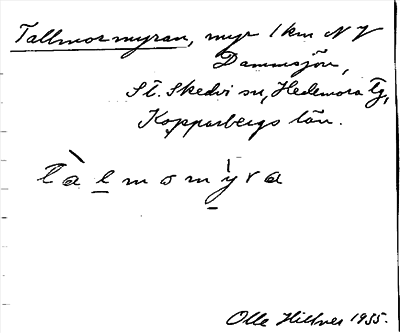 Tallmormyran, myr 1 km NV
Dammsjön,
St. Skedvi sn, Hedemora tg,
Kopparbergs län.
tàlmomỳra
Olle Hillner 1955.